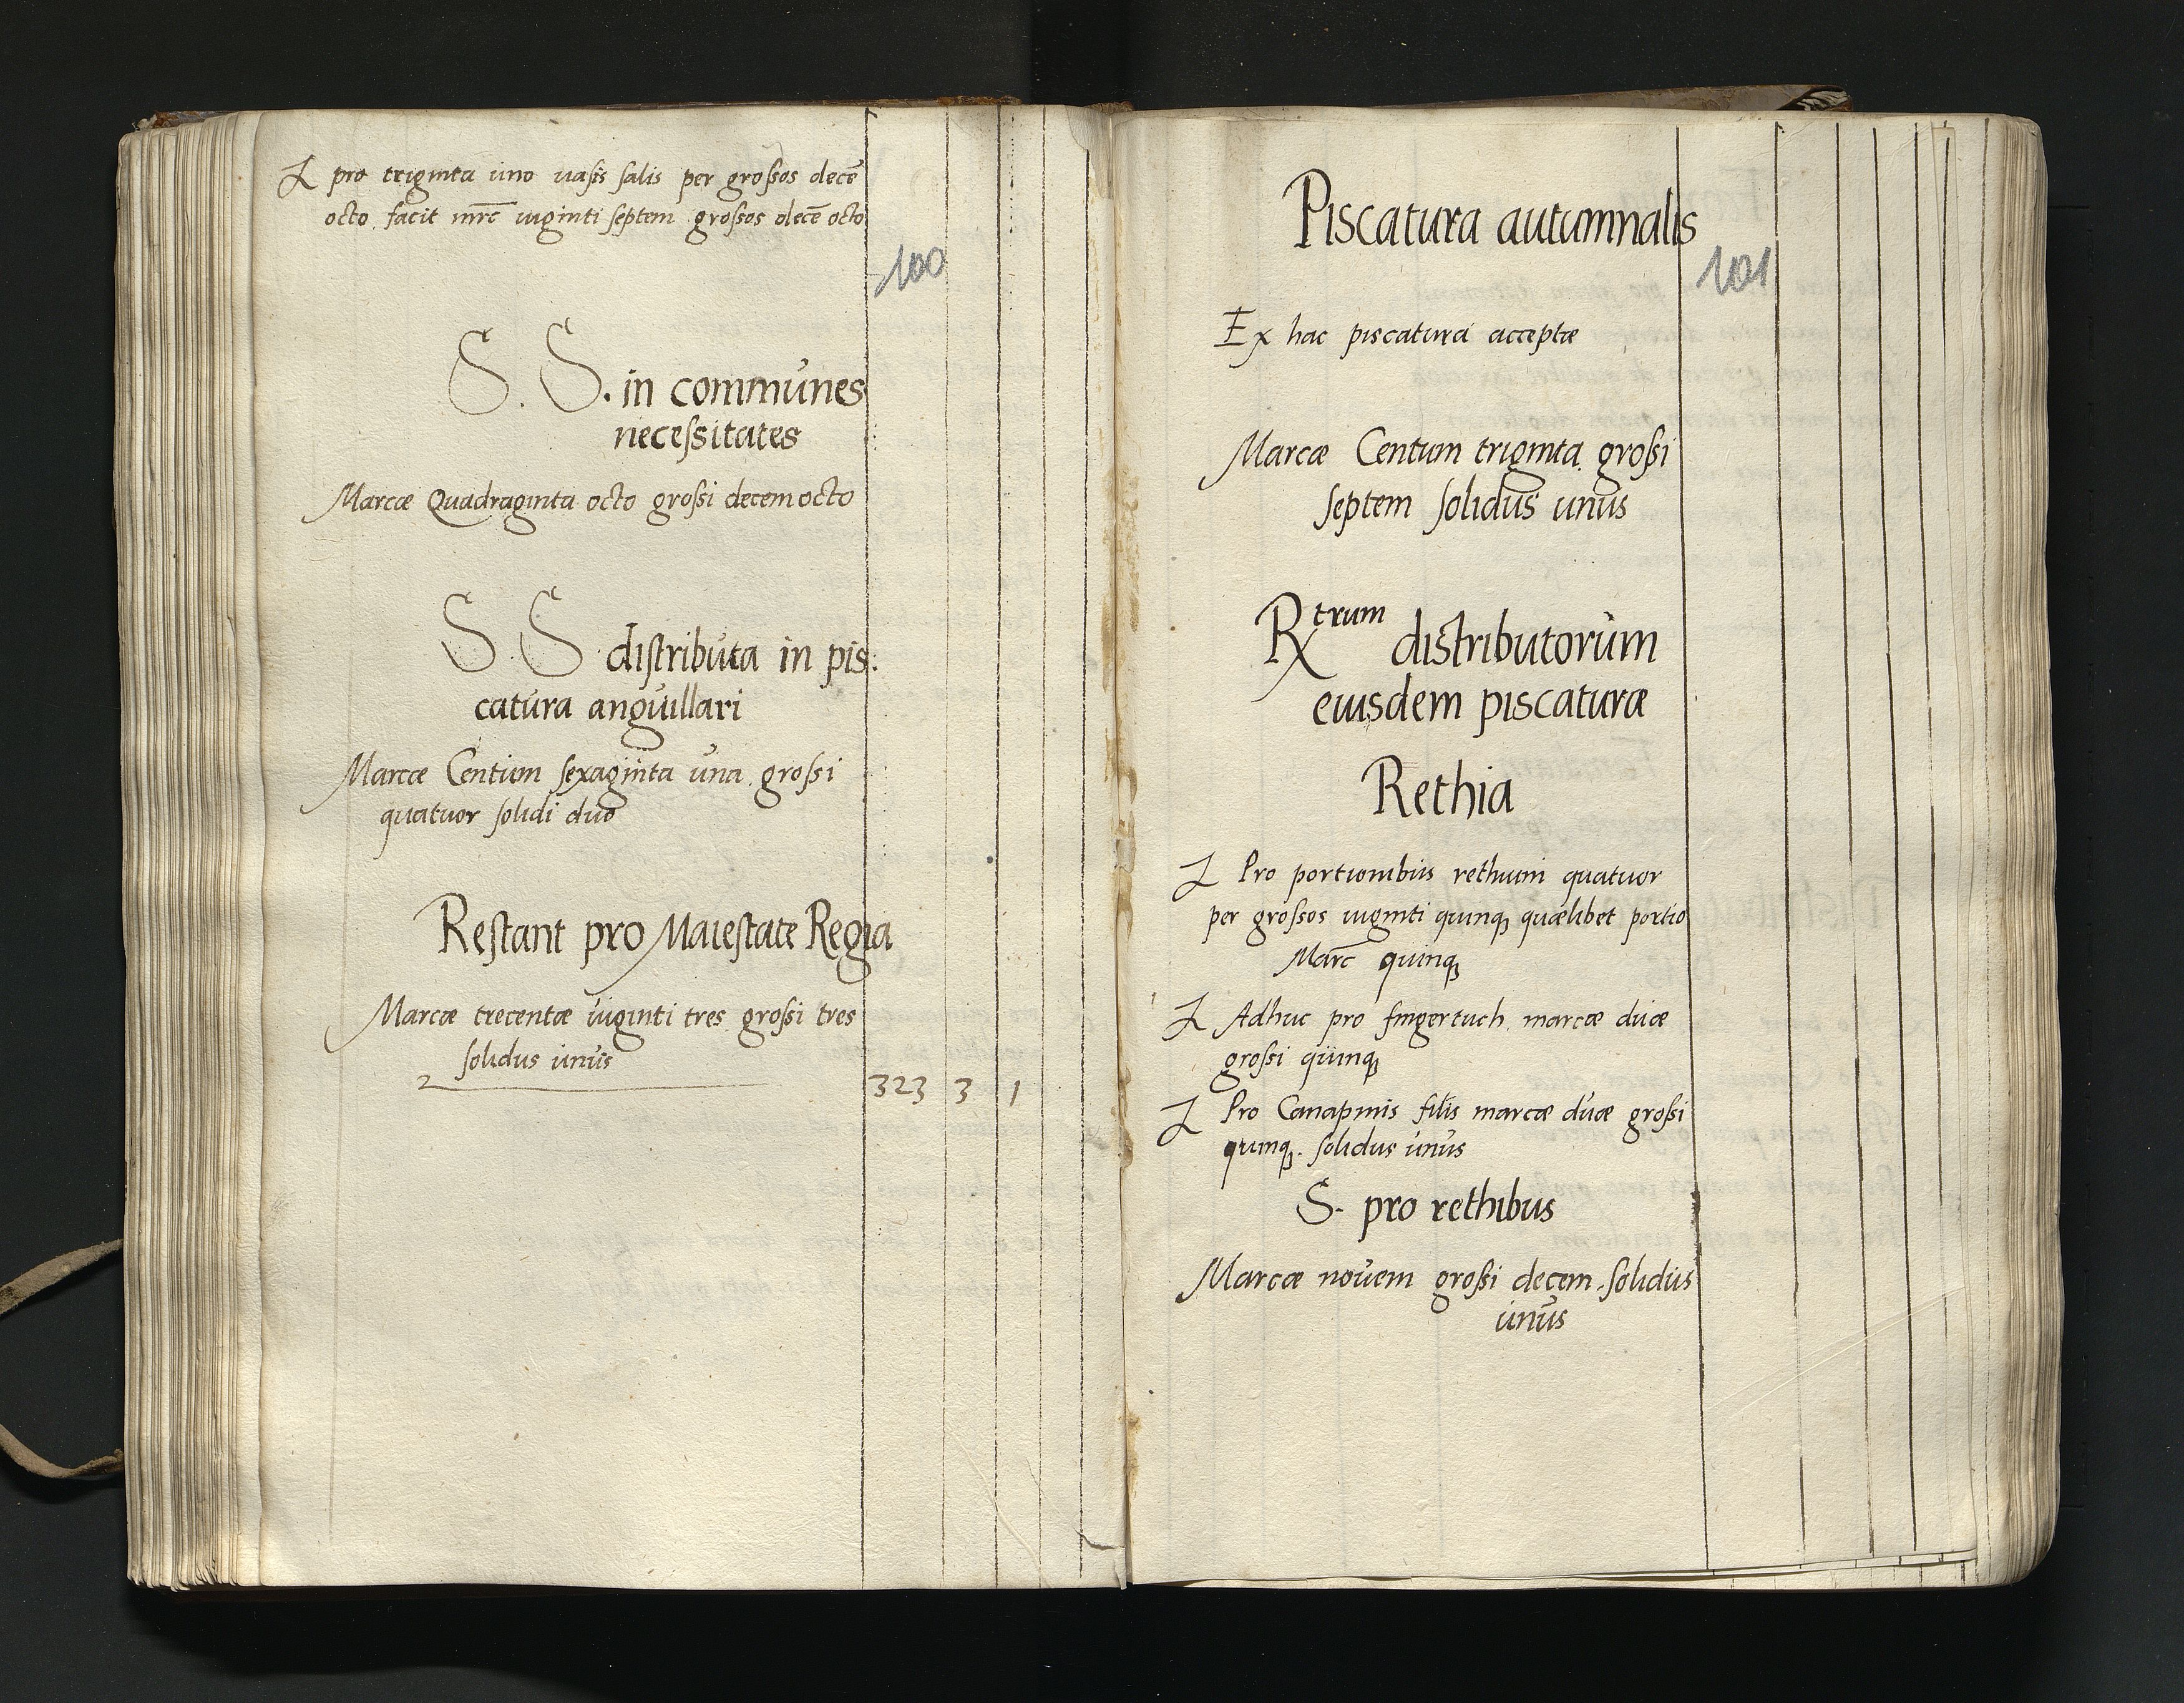 L pro triginta uno uasis salis per grossos decē
octo facit mrc uiginti septem grossos decē octo
100
S. S. in communes
necessitates
Marcæ Quadraginta octo grossi decem octo
S. S distributa in pis:
catura anguillari
Marcæ Centum sexaginta una grossi
quatuor solidi duo
Restant pro Maiestate Regia
Marcæ trecentæ uiginti tres grossi tres
solidus unus
323 3 1
Piscatura autumnalis
101
Ex hac piscatura acceptæ
Marcæ Centum triginta grossi
septem solidus unus
Rx trum distributorum
eiusdem piscaturæ
Rethia
L Pro portionibus rethium quatuor
per grossos uiginti quinq quælibet portio
Marc quinq
L Adhuc pro fingertuch marcæ duæ
grossi quinq
L Pro Canapinis filis marcæ duæ grossi
quinq. solidus unus
S. pro rethibus
Marcæ nouem grossi decem solidus
unus